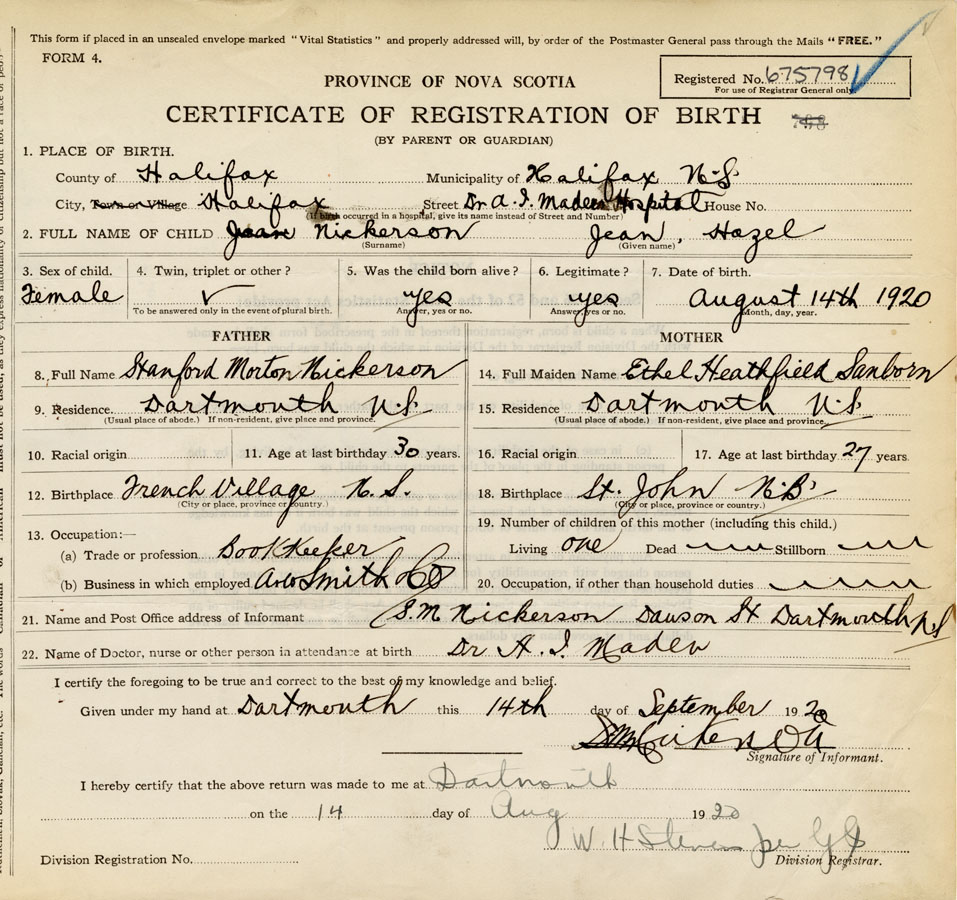 This form if placed in an unsealed envelope marked "Vital Statistics" and properly addressed will, by order of the Postmaster General pass through the Mails "FREE."
FORM 4.
Registered No. 675798
For use of Registrar General only.
PROVINCE OF NOVA SCOTIA
CERTIFICATE OF REGISTRATION OF BIRTH
(BY PARENT OR GUARDIAN)
1. PLACE OF BIRTH.
County of Halifax Municipality of Halifax N.S.
City, Town or Village Halifax Street Dr A. I. Mader Hospital House No.
(If birth occurred in a hospital, give its name instead of Street and Number)
2. FULL NAME OF CHILD Jean Nickerson Jean, Hazel
(Surname) (Given name)
3. Sex of child. 4. Twin, triplet or other? 5. Was the child born alive? 6. Legitimate? 7. Date of birth.
Female yes yes August 14th 1920
To be answered only in the event of plural birth. Answer, yes or no. Answer, yes or no. Month, day, year.
FATHER MOTHER
8. Full Name Stanford Morton Nickerson 14. Full Maiden Name Ethel Heathfield Sanborn
9. Residence. Dartmouth N.S. 15. Residence Dartmouth N.S.
(Usual place of abode.) If non-resident, give place and province. (Usual place of abode.) If non-resident, give place and province.
10. Racial origin 11. Age at last birthday 30 years. 16. Racial origin 17. Age at last birthday 27 years.
12. Birthplace French Village N.S. 18. Birthplace St. John N.B.
(City or place, province or country.) (City or place, province or country.)
13. Occupation:— 19. Number of children of this mother (including this child.)
(a) Trade or profession BookKeeper Living one Dead Stillborn
(b) Business in which employed Smith Co 20. Occupation, if other than household duties
21. Name and Post Office address of Informant S.M Nickerson Dawson St Dartmouth N.S
22. Name of Doctor, nurse or other person in attendance at birth Dr A. I. Mader
I certify the foregoing to be true and correct to the best of my knowledge and belief.
Given under my hand at Dartmouth this 14th day of September 1920
Signature of Informant.
I hereby certify that the above return was made to me at Dartmouth
on the 14 day of Aug 1920
W. H Stevens per
Division Registration No. Division Registrar.